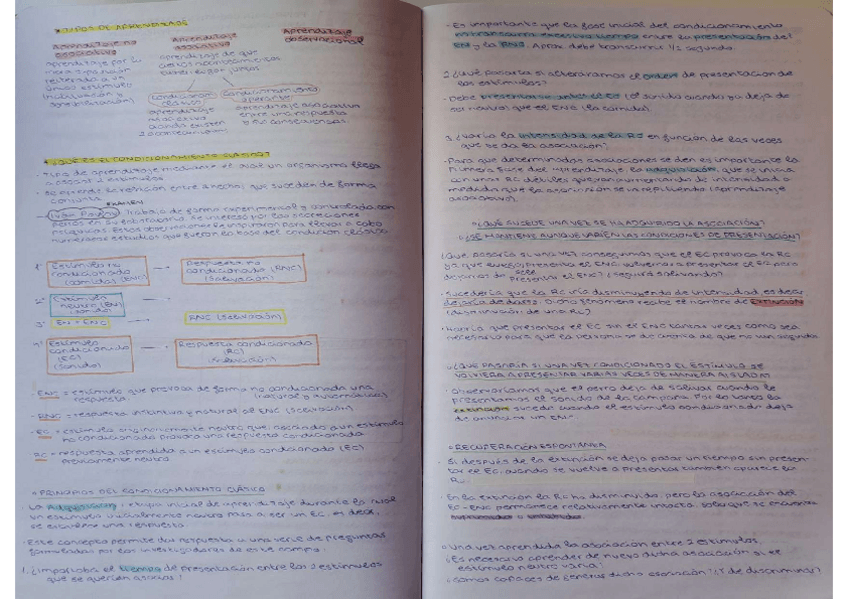 * TIPOS DE APRENDIZAJE
Aprendizaje no asociativo
aprendizaje por la
mera exposición
reiterada a un
único estímulo
(habituación y
sensibilización)
Aprendizaje asociativo
aprendizaje de que
ciertos acontecimientos
juntos
condicionam. clásico
aprendizaje
asociativo
cuando existen
2 acontecimientos
condicionamiento operante
aprendizaje asociativo
entre una respuesta
y su consecuencia.
Aprendizaje observacional
* ¿QUÉ ES EL CONDICIONAMIENTO CLÁSICO?
- Tipo de aprendizaje mediante el cual un organismo llega
a asociar 2 estímulos.
se aprende la relación entre 2 hechos que suceden de forma
conjunta
EXAMEN
- Ivan Pavlov: Trabajó de forma experimental y controlada con
perros en su laboratorio. Se interesó por las secreciones
psíquicas. Estas observaciones le inspiraron para llevar a cabo
numerosos estudios que fueron la base del condicion. clásico.
1º Estímulo no condicionado (comida) (ENC) → Respuesta no condicionada (RNC) (salivación)
2º Estímulo neutro (EN) (sonido)
3º EN + ENC → RNC (salivación)
4º Estímulo condicionado (EC) (sonido) → Respuesta condicionada (RC) (salivación)
- ENC = estímulo que provoca de forma no condicionada una
respuesta. (natural y automática)
- RNC = respuesta instintiva y natural al ENC (salivación)
- EC = estímulo originariamente neutro que, asociado a un estímulo
no condicionado provoca una respuesta condicionada
- RC = respuesta aprendida a un estímulo condicionado (EC)
previamente neutro.
* PRINCIPIOS DEL CONDICIONAMIENTO CLÁSICO
- La Adquisición: etapa inicial de aprendizaje durante la cual
un estímulo inicialmente neutro pasa a ser un EC, es decir,
se establece una respuesta.
- Este concepto permite dar respuesta a una serie de preguntas
formuladas por los investigadores de este campo:
1. ¿Importaba el tiempo de presentación entre los 2 estímulos
que se querían asociar?
- Es importante que la fase inicial del condicionamiento
no transcurra excesivo tiempo entre la presentación del
EN y la RNC. Aprox debe transcurrir 1/2 segundo.
2. ¿Qué pasaría si alteráramos el orden de presentación de
los estímulos?
- Debe presentarse antes el EC (el sonido cuando ya deja de
ser neutro) que el ENC (la comida).
3. ¿Varía la intensidad de la RC en función de las veces
que se da la asociación?
- Para que determinadas asociaciones se den es importante la
primera fase del aprendizaje, la adquisición, que se inicia
con unas RC débiles que van aumentando de intensidad a
medida que la asociación se va repitiendo (aprendizaje
asociativo).
¿QUÉ SUCEDE UNA VEZ SE HA ADQUIRIDO LA ASOCIACIÓN?
¿SE MANTIENE AUNQUE VARÍEN LAS CONDICIONES DE PRESENTACIÓN?
¿Qué pasaría si una vez conseguimos que el EC provoca la RC
ya que siempre precede el ENC, volvemos a presentar el EC pero
dejamos de presentar el ENC? (¿seguirá salivando?)
- Sucedería que la RC iría disminuyendo de intensidad, es decir
dejaría de darse. Dicho fenómeno recibe el nombre de Extinción
(disminución de una RC)
- Habría que presentar el EC sin el ENC tantas veces como sea
necesario para que la persona se dé cuenta de que no van seguidos
¿QUÉ PASARÍA SI UNA VEZ CONDICIONADO EL ESTÍMULO SE
VOLVIERA A PRESENTAR VARIAS VECES DE MANERA AISLADA?
- Observaríamos que el perro deja de salivar cuando le
presentamos el sonido de la campana. Por lo tanto la
extinción sucede cuando el estímulo condicionado deja
de anunciar un ENC.
* RECUPERACIÓN ESPONTÁNEA
- Si después de la extinción se deja pasar un tiempo sin presen-
tar el EC, cuando se vuelve a presentar también aparece la
R
- En la extinción la RC ha disminuido, pero la asociación del
EC-ENC permanece relativamente intacta, solo que se encuentra
o Una vez aprendida la asociación entre 2 estímulos.
¿Es necesario aprender de nuevo dicha asociación si el
estímulo neutro varía?
¿Somos capaces de generar dicha asociación? ¿Y de discriminar?